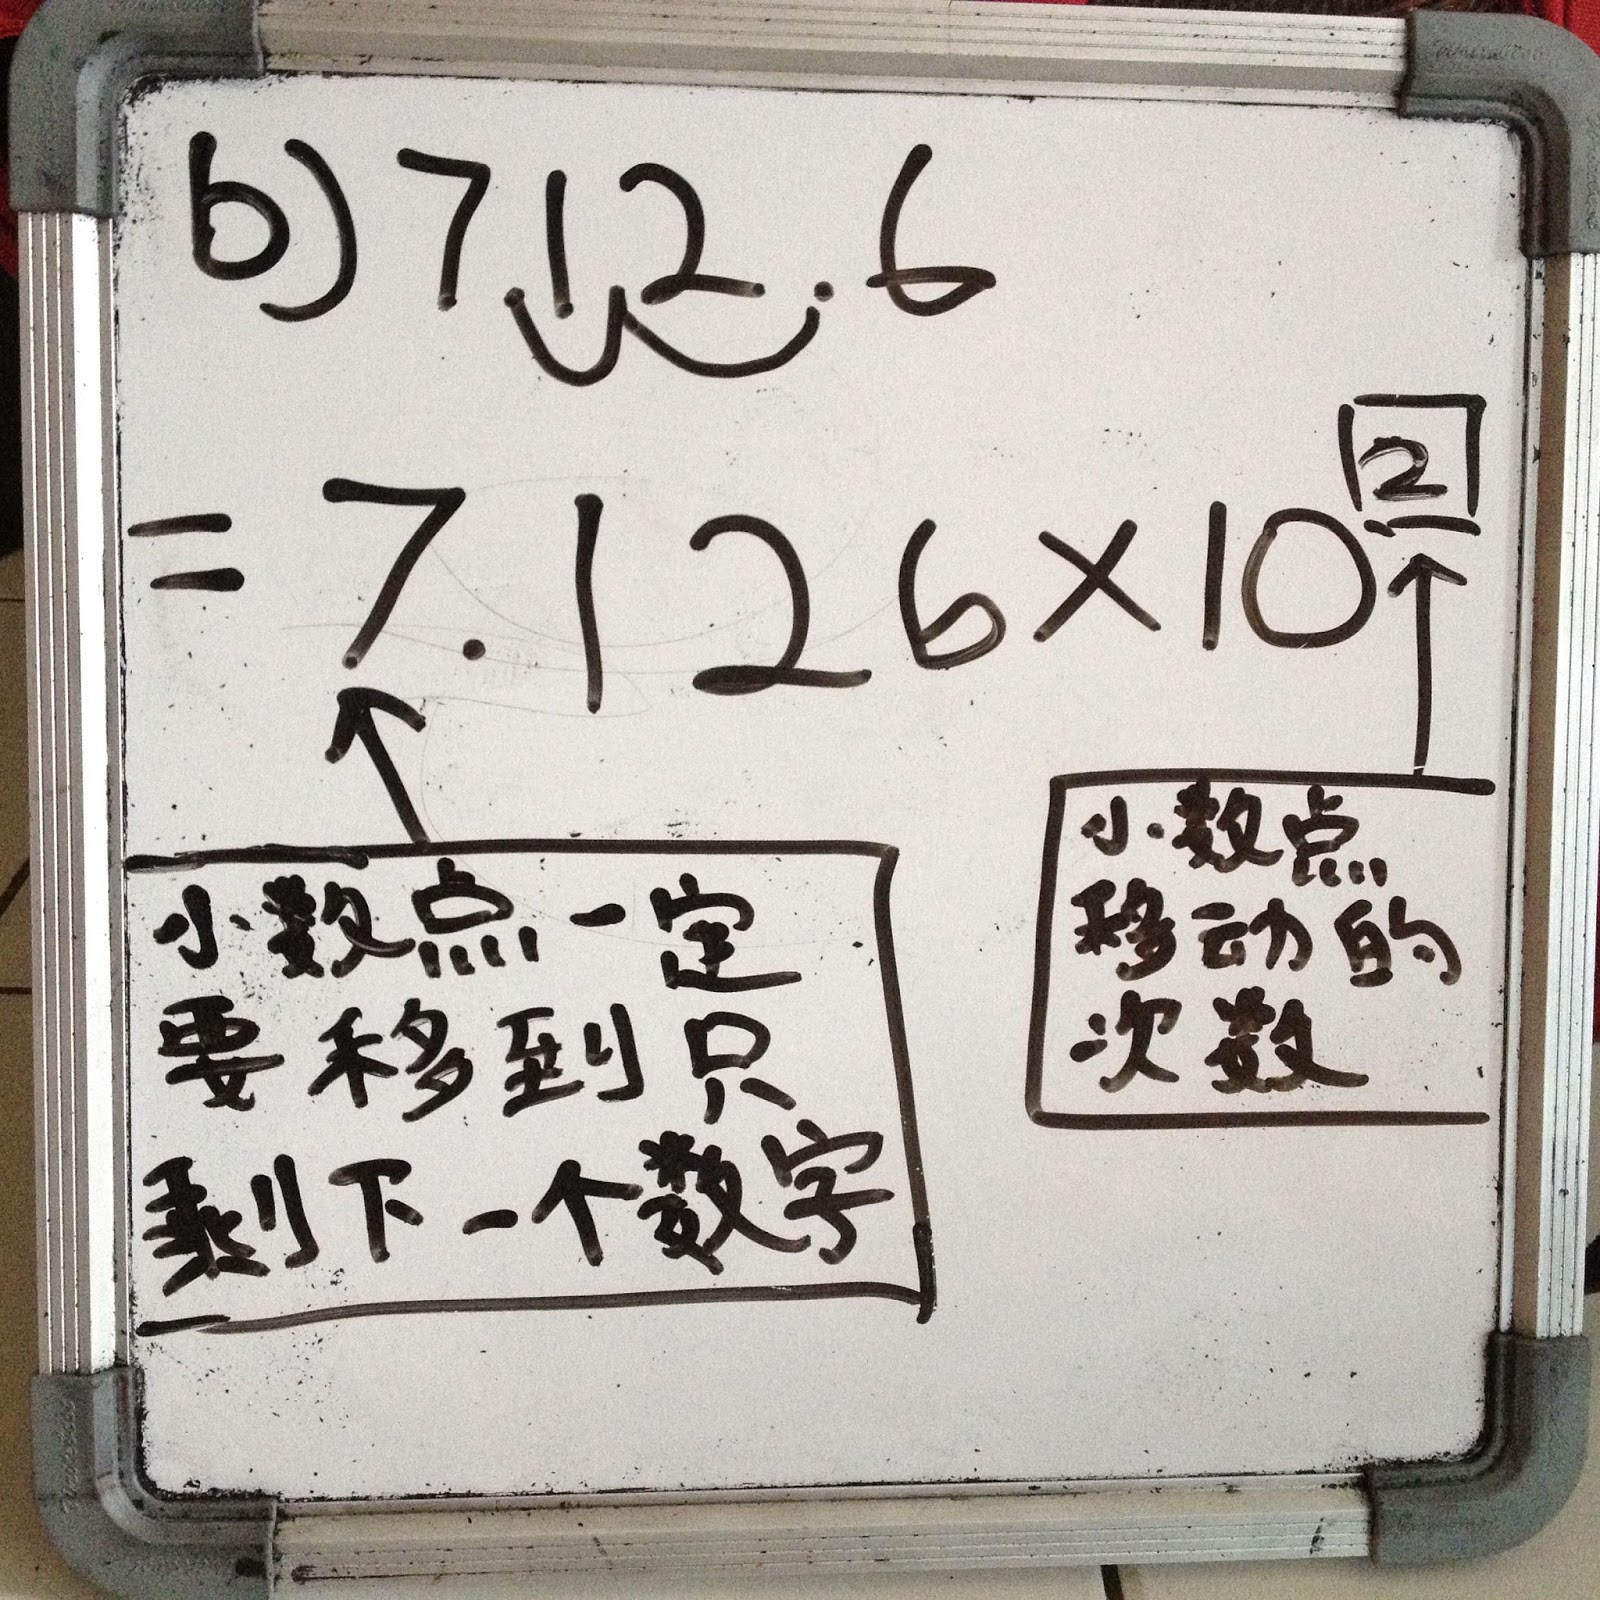 b) 712.6
= 7.126×10²
小数点一定
要移到只
剩下一个数字
小数点
移动的
次数